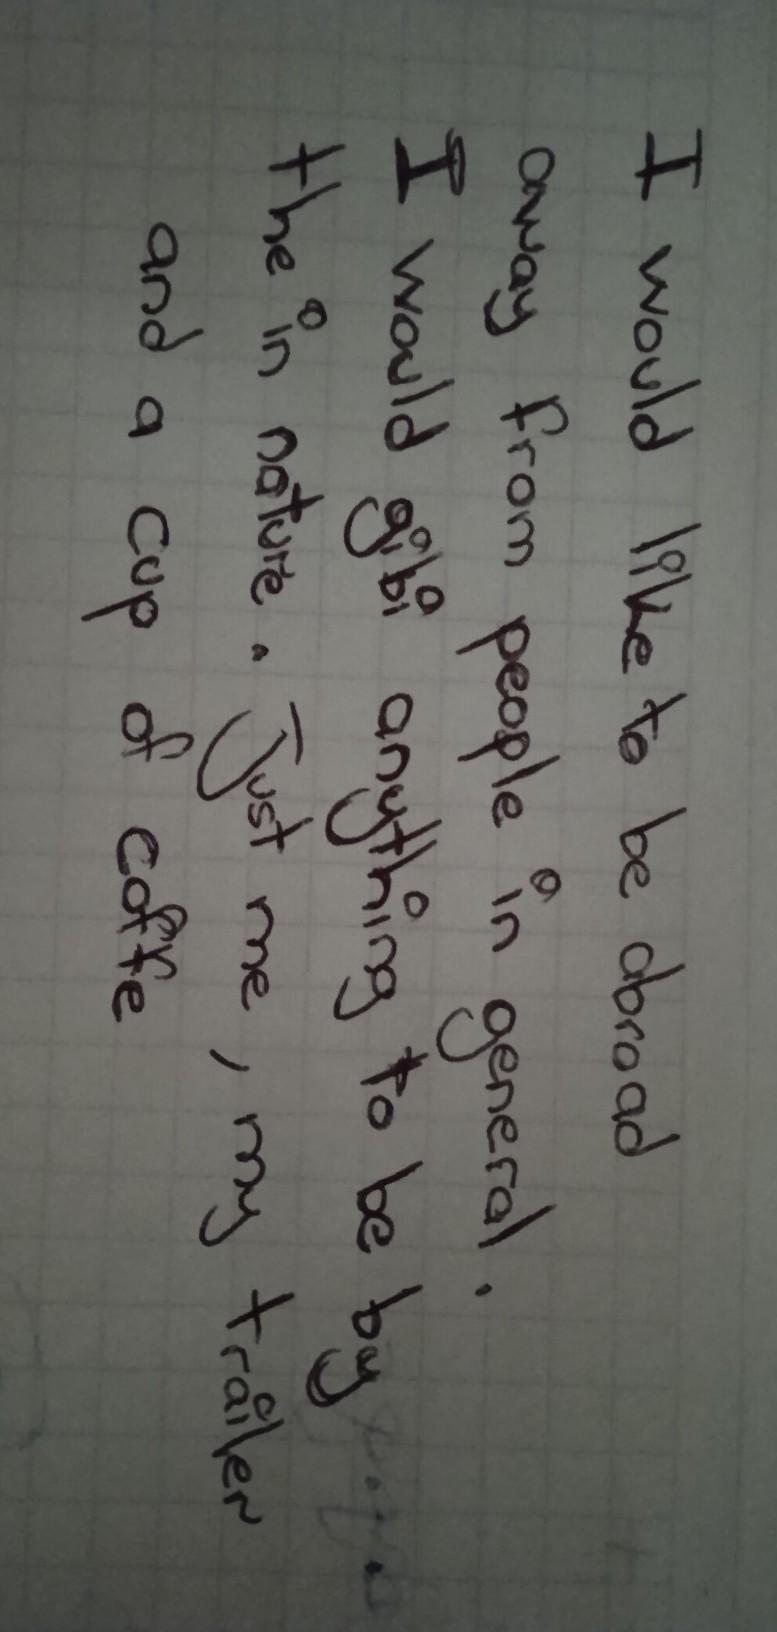 I would like to be abroad
away from people in general.
I would gibi anything to be by
the in nature. Just me, my trailer
and a cup of coffe